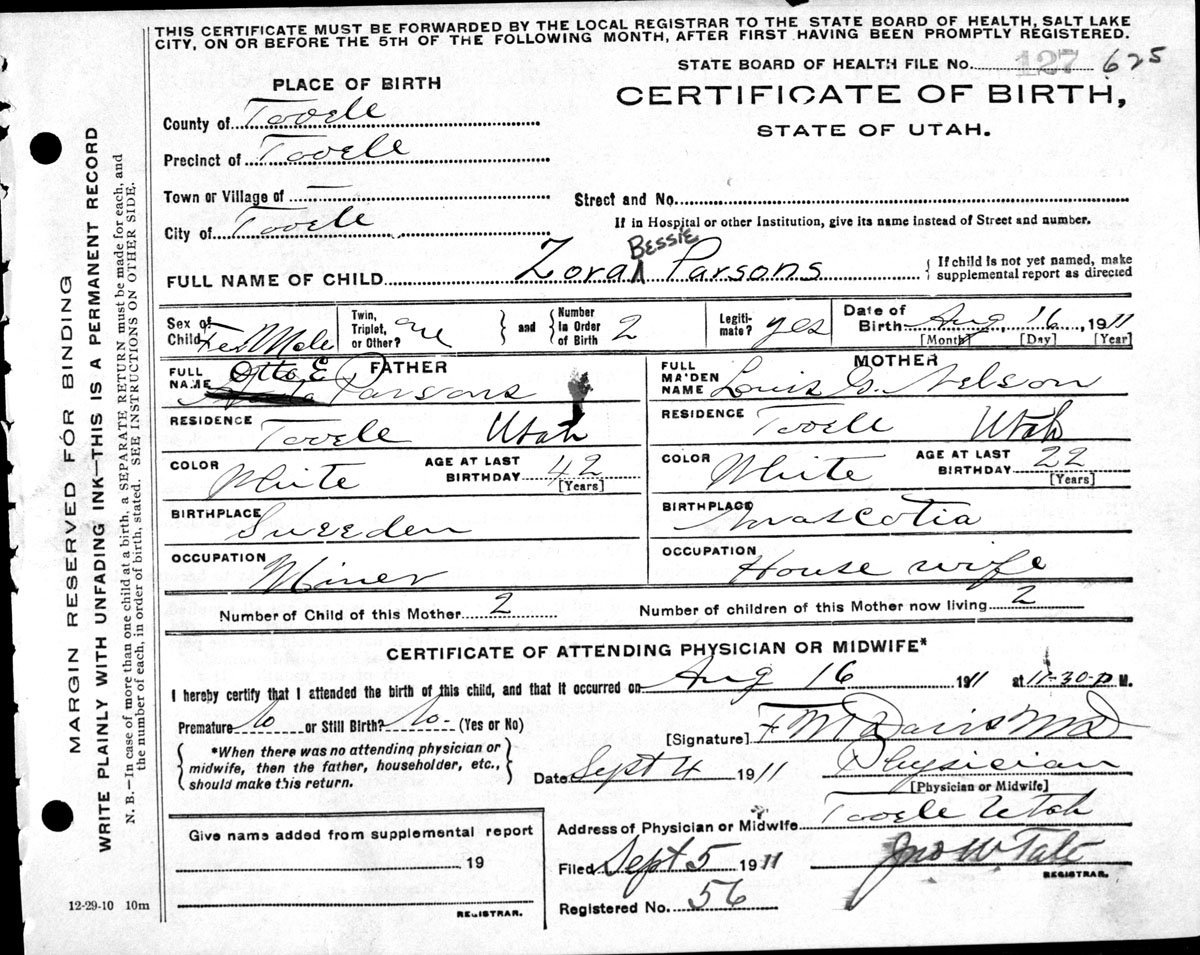 THIS CERTIFICATE MUST BE FORWARDED BY THE LOCAL REGISTRAR TO THE STATE BOARD OF HEALTH, SALT LAKE
CITY, ON OR BEFORE THE 5TH OF THE FOLLOWING MONTH, AFTER FIRST HAVING BEEN PROMPTLY REGISTERED.
STATE BOARD OF HEALTH FILE No. 127 625
PLACE OF BIRTH
CERTIFICATE OF BIRTH,
STATE OF UTAH.
County of Tooele
Precinct of Tooele
Town or Village of —
Street and No.
If in Hospital or other Institution, give its name instead of Street and number.
City of Tooele
FULL NAME OF CHILD Zora BESSIE Parsons
If child is not yet named, make
supplemental report as directed
Sex of Child Fe Male
Twin, Triplet, or Other? one
and
Number in Order of Birth 2
Legitimate? yes
Date of Birth Aug 16, 1911
[Month] [Day] [Year]
FATHER
FULL NAME Otto E Parsons
RESIDENCE Tooele Utah
COLOR White
AGE AT LAST BIRTHDAY 42
[Years]
BIRTHPLACE Sweeden
OCCUPATION Miner
MOTHER
FULL MAIDEN NAME Louis G. Nelson
RESIDENCE Tooele Utah
COLOR White
AGE AT LAST BIRTHDAY 22
[Years]
BIRTHPLACE
OCCUPATION House wife
Number of Child of this Mother 2
Number of children of this Mother now living 2
CERTIFICATE OF ATTENDING PHYSICIAN OR MIDWIFE*
I hereby certify that I attended the birth of this child, and that it occurred on Aug 16 1911 at 11-30-P M.
Premature No or Still Birth? No- (Yes or No)
*When there was no attending physician or
midwife, then the father, householder, etc.,
should make this return.
[Signature] F M Davis MD
Date Sept 4 1911
Physician
[Physician or Midwife]
Address of Physician or Midwife Tooele Utah
Filed Sept 5 1911
Jno W Tate
REGISTRAR.
Registered No. 56
Give name added from supplemental report
19
REGISTRAR.
12-29-10 10m
MARGIN RESERVED FOR BINDING
WRITE PLAINLY WITH UNFADING INK—THIS IS A PERMANENT RECORD
N. B.—In case of more than one child at a birth, a SEPARATE RETURN must be made for each, and
the number of each, in order of birth, stated. SEE INSTRUCTIONS ON OTHER SIDE.